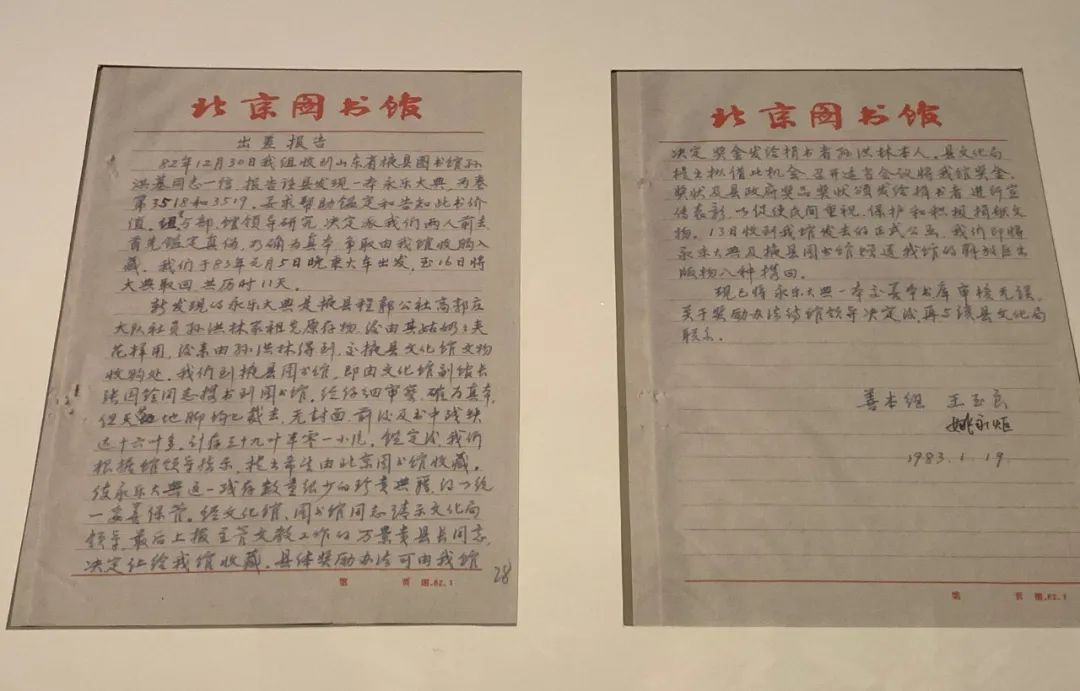 北京图书馆
出差报告
82年12月30日我组收到山东省掖县图书馆孙
洪基同志一信,报告该县发现一本永乐大典,为卷
第3518和3519,要求帮助鉴定和告知此书价
值,组与部、馆领导研究,决定派我们两人前去
首先鉴定真伪,如确为真本,争取由我馆收购入
藏。我们于83年元月5日晚乘火车出发,至16日将
大典取回,共历时11天。
新发现的永乐大典是掖县程郭公社高郭庄
大队社员孙洪林家祖先原存物,后由其姑奶夹
花样用,后来由孙洪林得到,交掖县文化馆文物
收购处。我们到掖县图书馆,即由文化馆副馆长
张国铨同志携书到图书馆。经仔细审察,确为真本,
但天头地脚均已裁去,无封面,前后及书中残缺
达十六叶多,计存三十九叶半零一小片。鉴定后,我们
根据馆领导指示,提出希望由北京图书馆收藏。
使永乐大典这一残存数量很少的珍贵典籍,得以统
一妥善保管。经文化馆、图书馆同志请示文化局
领导,最后上报主管文教工作的万景贵县长同意,
决定让给我馆收藏。具体奖励办法可由我馆
馆 页 图.82.1
28
北京图书馆
决定,奖金发给捐书者孙洪林本人。县文化局
提出拟借此机会,召开适当会议将我馆奖金、
奖状及县政府奖品奖状颁发给捐书者,进行宣
传表彰,以促使民间重视、保护和积极捐献文
物。13日收到我馆发去的正式公函,我们即将
永乐大典及掖县图书馆赠送我馆的解放区出
版物八种携回。
现已将永乐大典一本交善本书库审核无误。
关于奖励办法待馆领导决定后,再与该县文化局
联系。
善本组 王玉良
姚永炬
1983.1.19.
馆 页 图.82.1